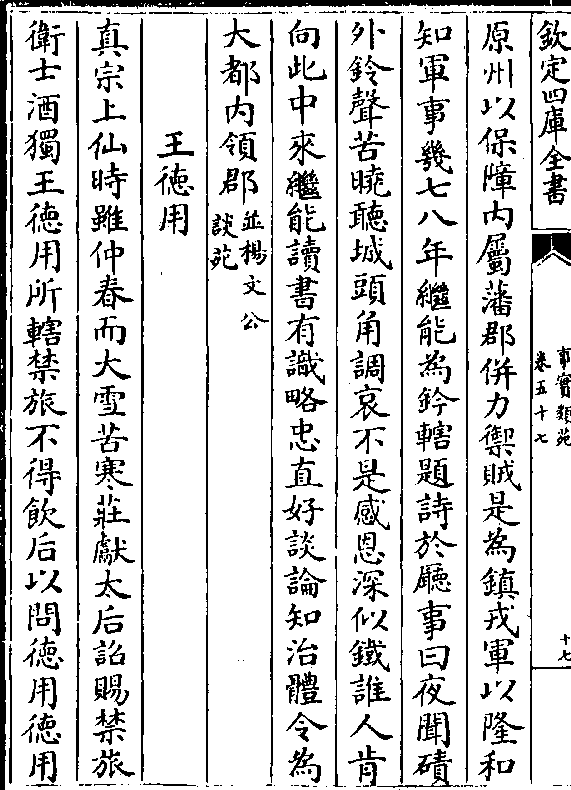 欽定四庫全書
事實類苑
卷五十七
十七
原州以保障内屬藩郡併力禦賊是為鎮戎軍以隆和
知軍事幾七八年繼能為鈐轄題詩於廳事曰夜聞磧
外鈴聲苦曉聽城頭角調哀不是感恩深似鐵誰人肯
向此中來繼能讀書有識略忠直好談論知治體令為
大都内領郡並楊文公
談苑
王徳用
真宗上仙時雖仲春而大雪苦寒莊獻太后詔賜禁旅
衛士酒獨王徳用所轄禁旅不得飲后以問徳用徳用